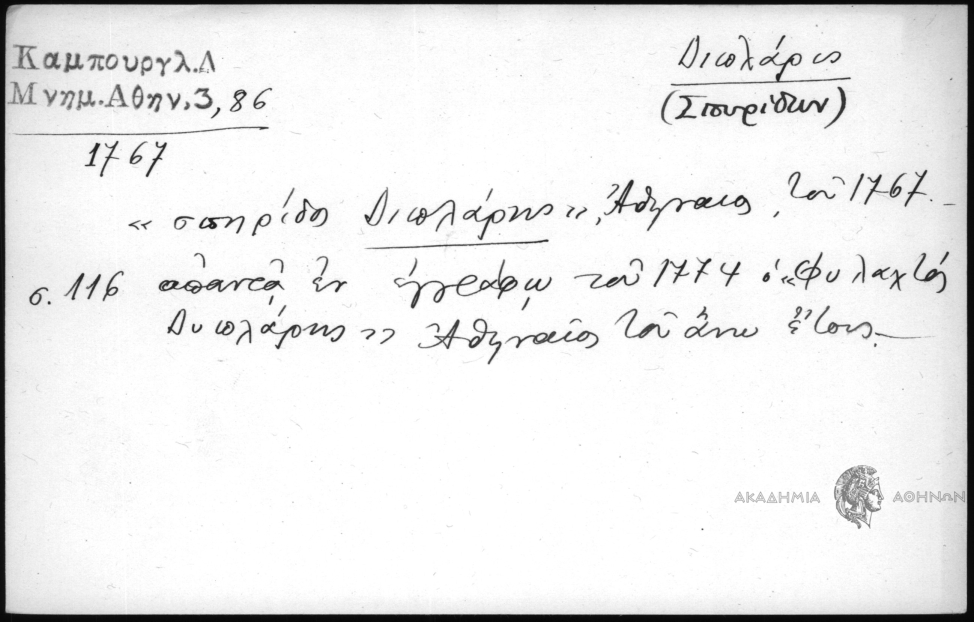 Καμπουργλ.Δ
Μνημ.Αθην,3, 86
1767
Διπλάρης
(Σπυρίδων)
« σπηρίδος Διπλάρης », Ἀθηναῖος, τοῦ 1767.
σ. 116 ἀπαντᾷ ἐν ἐγγράφῳ τοῦ 1774 ὁ «Φυλαχτός
Δυπλάρης » Ἀθηναῖος τοῦ ἄνω ἔτους.
ΑΚΑΔΗΜΙΑ ΑΘΗΝΩΝ